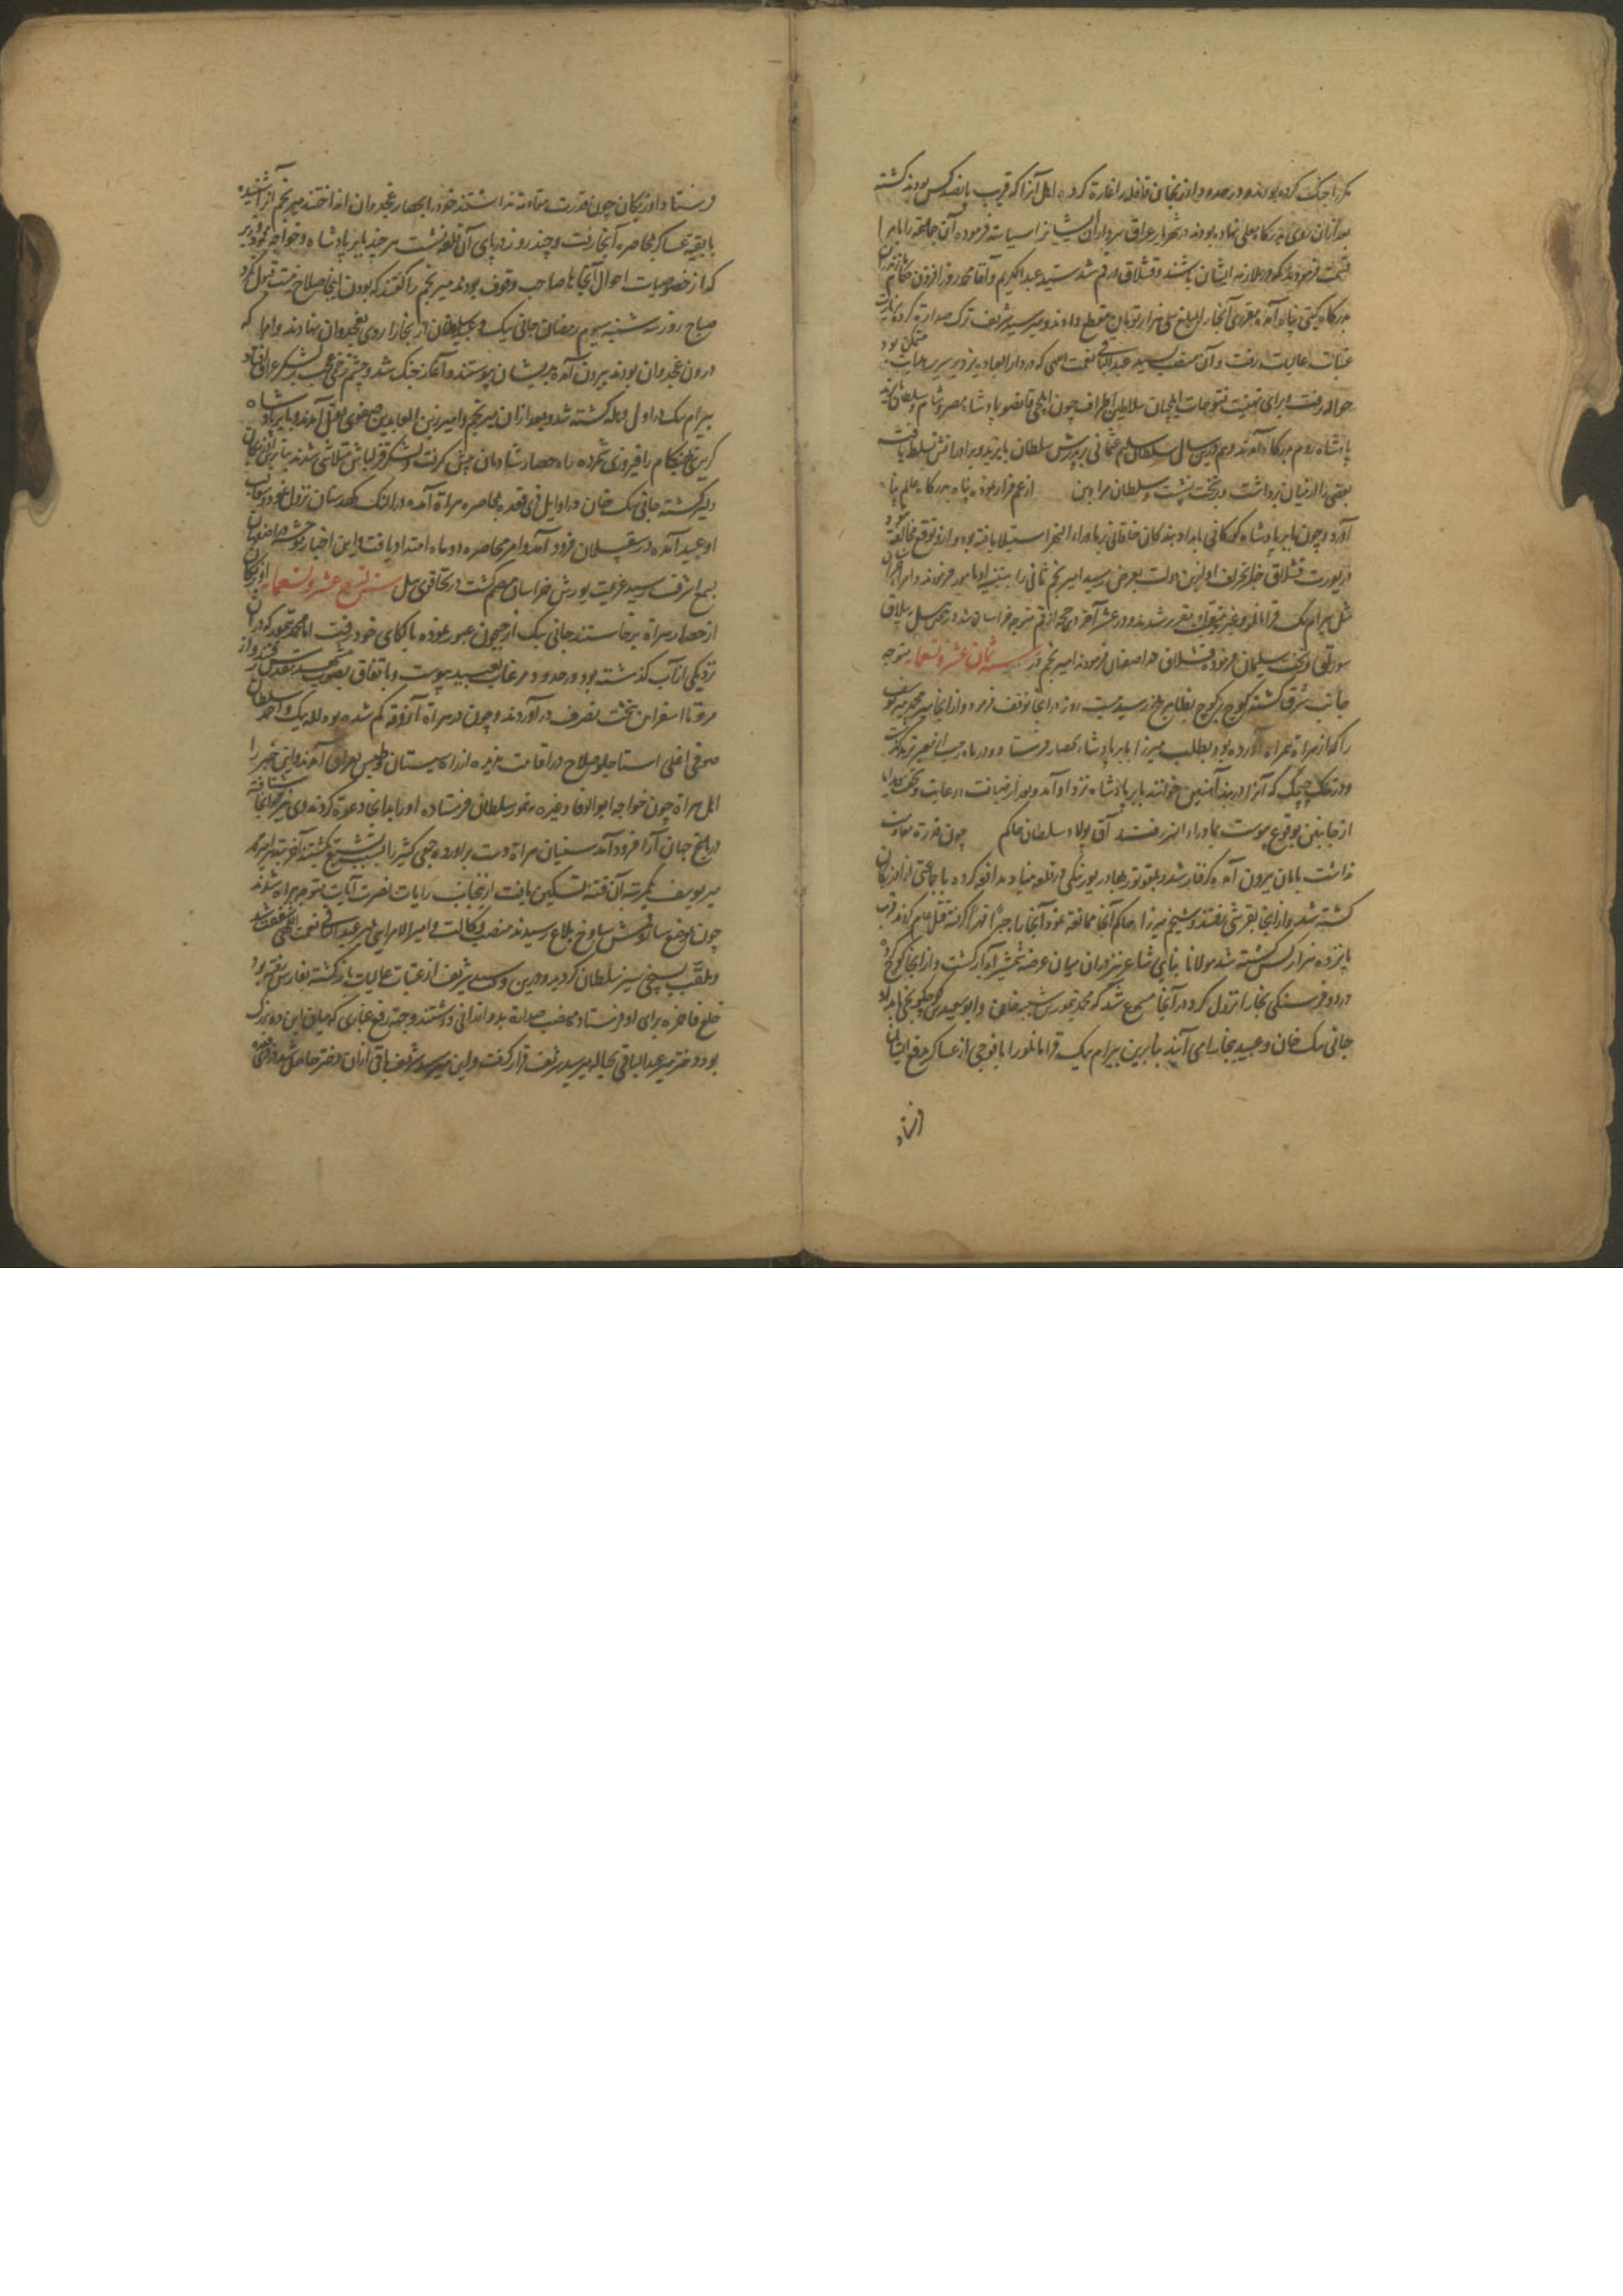 مکرر جنک کرده بودند و در حدود اذربجان قافله را غارة کرده اهل آنرا که قریب پانصد کس بودند کشته
بعد ازان روی بدرکاه معلی نهاده بودند در شهریار عراق سرداران ایشانرا سیاسة فرموده آن جماعة را بامرا
قسمت فرمودند که در ملازمة ایشان باشند و قشلاق در قم شد سید عبدالکریم و آقا محمد روزافزون حکام مازندران
بدرکاه کیتی پناه آمده مقرری آنجا را بمبلغ سی هزار تومان مقطع دادند و میر سید شریف ترک صدارة کرده بزیارت
عتبات عالیات رفت و آن منصب بسید عبدالباقی نعمت اللهی که در دارالعباد یزد بر سریر هدایت متمکن بود
حواله رفت و برای تهنیت فتوحات ایلچیان سلاطین اطراف چون ایلچی قانصو پادشاه مصر و شام و سلطان بایزید
پادشاه روم بدرکاه آمدند و هم درین سال سلطان سلیم عثمانی بر پدرش سلطان بایزید و برادرانش تسلط یافت
بعضی را از میان برداشت و بر تخت نشست و سلطان مراد بن از عم فرار نموده پناه بدرکاه عالم پناه
آورد و چون بابر پادشاه کورکانی بامداد بندکان خاقانی بر ماوراء النهر استیلا یافته بود و ازو توقع مخالفت
در یورت قشلاق خبر انحراف او ازین دولت بعرض رسید امیر نجم ثانی را بتنبیه او مامور فرمودند و امراء
مثل بیرام بیک قرامانلو و غیره بمرافقت مقرر شدند و در عشر آخر ذی حجه از قم متوجه خراسان شد و در همین سال ییلاق
سورلق و تخت سلیمان فرموده قشلاق در اصفهان فرمودند امیر نجم در سنه ثمان عشر و تسعمایه متوجه
جانب شرق کشته کوچ بر کوچ بظاهر بلخ رسید بیست روز در انجا توقف فرمود و از انجا میر محمد میر یوسف
را که از هراة همراه آورده بود بطلب میرزا بابر پادشاه بحصار فرستاد و در ماه رجب از معبر ترمذ کذشت
و در تنک چکچک که آنرا دربند آهنین خوانند بابر پادشاه نزد او آمد و بعد از ضیافت و رعایت و تحف و هدایا
از جانبین بوقوع پیوست بماوراء النهر رفتند آق پولاد سلطان حاکم چون قدرة مقاومت
نداشت بامان بیرون آمده کرفتار شد و بقتل رسید
کشته شد و از انجا بقرشی رفتند و شیخم میرزا حاکم آنجا ممانعة نمود آنجا را جبرا قهرا کرفته قتل عام کردند قریب
پانزده هزار کس کشته شد مولانا بنایی شاعر نیز دران میان عرضه شمشیر آبدار کشت و از انجا کوچ کرده
در دو فرسنکی بخارا نزول کرد و در آنجا مسموع شد که محمد تیمور بن شیبه خان و ابوسعید بن کوچکونجی بامداد
جانی بیک خان و عبید ببخارا می آیند بنابرین بیرام بیک قرامانلو را با فوجی از عساکر بدفع ایشان
فرستاد
فرستاد و اوزبکان چون قدرت مقاومة نداشتند خود را بحصار غجدوان انداختند میر نجم انرا شنیده
با بقیه عساکر بمحاصره آنجا رفت و چند روز در پای آن قلعه نشست هر چند بابر پادشاه و خواجه محمود
که از خصوصیات احوال آنجاها صاحب وقوف بودند میر نجم را کفتند که بودن اینجا صلاح نیست قبول نکرد
صباح روز سه شنبه سیوم رمضان جانی بیک و عبید سلطان از بخارا روی بغجدوان نهادند و امرا که
درون غجدوان بودند بیرون آمده بدیشان پیوستند و آهنک جنک شد و چشم زخمی عجب بلشکر عراق افتاد
بیرام بیک در اول وهله کشته شد و بعد از ان میر نجم و امیر زین العابدین صفوی بقتل آمدند و بابر پادشاه
کریز بهنکام را فیروزی شمرده راه حصار شادمان پیش کرفت و لشکر قزلباش متلاشی شدند بنابرین اوزبکان
دلیر کشته جانی بیک خان در اوایل ذی قعده بمحاصره هراة آمده در النک کهدستان نزول نمود و بعقب
او عبید آمده در ساقسلمان فرود آمد و امر محاصره دو ماه امتداد یافت و این اخبار موحش در اصفهان
بسمع اشرف رسید عزیمت یورش خراسان مصمم کشت در تحاقوی ییل سنه تسع عشر و تسعمایه اوزبکان
از حصار هراة برخاستند جانی بیک از جیحون عبور نموده با لکای خود رفت اما محمد تیمور که در ان
نزدیکی از آب کذشته بود در حدود مرغاب بعبید پیوست و باتفاق بصوب مشهد مقدس و از
مرو تا اسفراین بتحت تصرف در آوردند و چون در هراة آذوقه کم شده بود لله بیک و احمد سلطان
صوفی اغلی استاجلو صلاح در اقامت ندیده از راه سیستان و طبس بعراق آمدند و این خبر را
اهل هراة چون خواجه ابوالوفا و غیره بتیمور سلطان فرستاده او را بدانجا دعوة کردند وی نیز بدانجا شتافته
در باغ جهان آرا فرود آمد سنیان هراة دست برآورده جمعی کثیر را بسبب تشیع کشتند آخر بتدبیر امیر محمد
میر یوسف یکمرتبه آن فتنه تسکین یافت از انجانب رایات نصرت آیات متوجه هراة شدند
چون بموضع سالوش بلاغ رسیدند منصب وکالت و امیرالامرایی بمیر عبدالباقی نعمت اللهی شفقت شد
و خلع فاخره برای او فرستاد منصب صدارة بدو ارزانی داشتند و جهة رفع غباری که میان این دو بزرک
بود دختر میر عبدالباقی بحباله میر سید شریف قرار کرفت و این میر سید شریف باقی ازان دختر حاصل شد